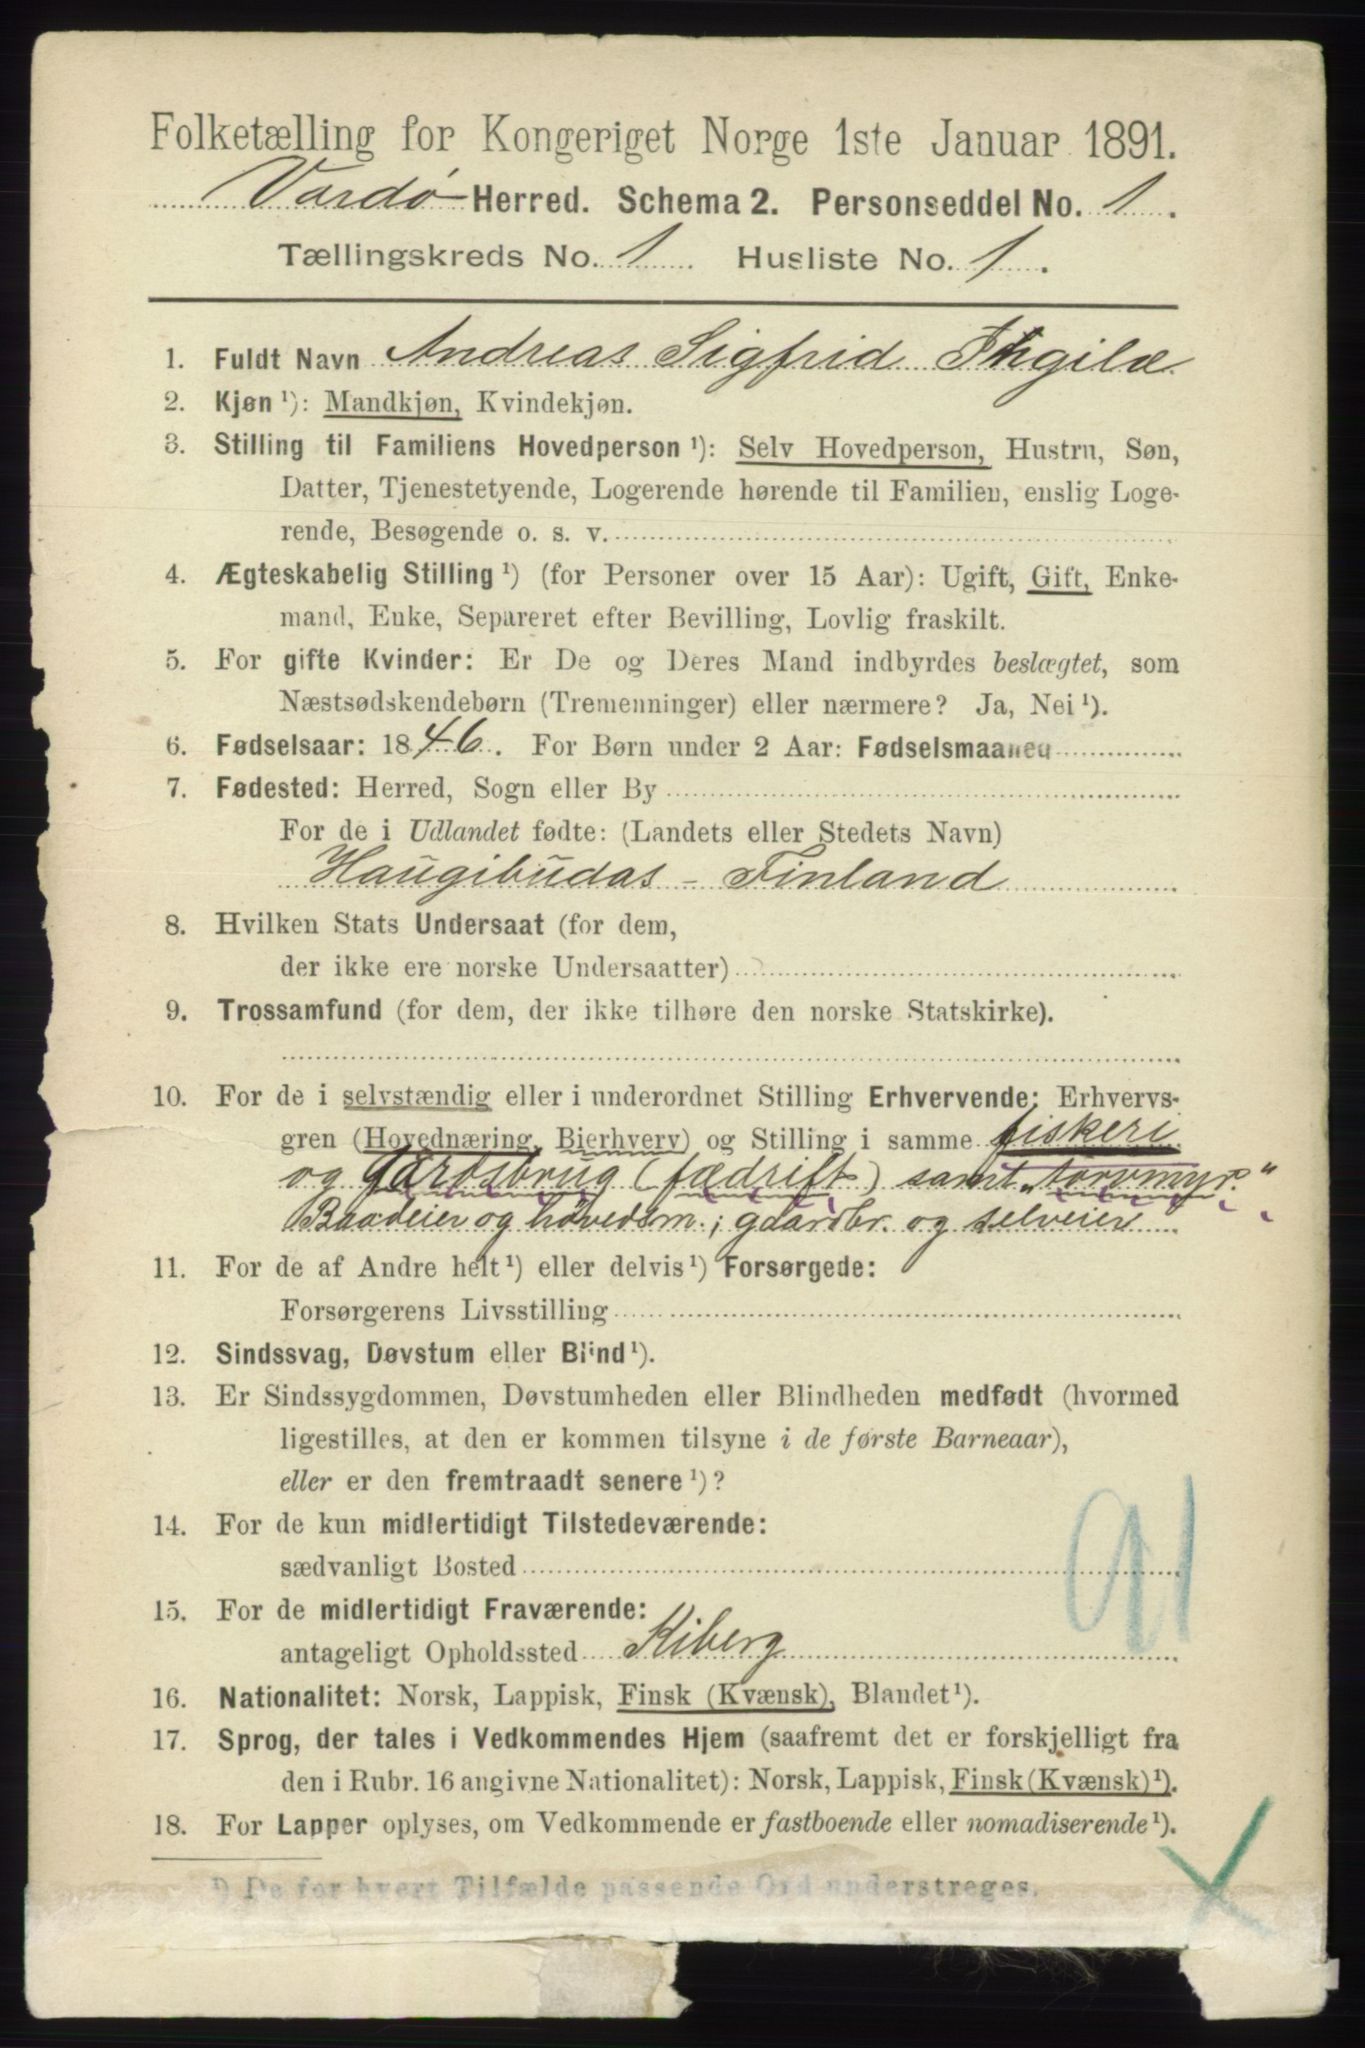 Folketælling for Kongeriget Norge 1ste Januar 1891.
Vardø Herred. Schema 2. Personseddel No. 1.
Tællingskreds No. 1 Husliste No. 1.
1. Fuldt Navn Andreas Sigfrid
2. Kjøn ¹): Mandkjøn, Kvindekjøn.
3. Stilling til Familiens Hovedperson ¹): Selv Hovedperson, Hustru, Søn,
Datter, Tjenestetyende, Logerende hørende til Familien, enslig Loge-
rende, Besøgende o. s. v.
4. Ægteskabelig Stilling ¹) (for Personer over 15 Aar): Ugift, Gift, Enke-
mand, Enke, Separeret efter Bevilling, Lovlig fraskilt.
5. For gifte Kvinder: Er De og Deres Mand indbyrdes beslægtet, som
Næstsødskendebørn (Tremenninger) eller nærmere? Ja, Nei ¹).
6. Fødselsaar: 1846. For Børn under 2 Aar: Fødselsmaaned
7. Fødested: Herred, Sogn eller By
For de i Udlandet fødte: (Landets eller Stedets Navn)
Haugibudas - Finland
8. Hvilken Stats Undersaat (for dem,
der ikke ere norske Undersaatter)
9. Trossamfund (for dem, der ikke tilhøre den norske Statskirke).
10. For de i selvstændig eller i underordnet Stilling Erhvervende: Erhvervs-
gren (Hovednæring, Bierhverv) og Stilling i samme fiskeri
og Gardsbrug (fædrift) samt "torvmyr."
Baadeier og høvedsm.; gaardbr. og selveier
11. For de af Andre helt ¹) eller delvis ¹) Forsørgede:
Forsørgerens Livsstilling
12. Sindssvag, Døvstum eller Blind ¹).
13. Er Sindssygdommen, Døvstumheden eller Blindheden medfødt (hvormed
ligestilles, at den er kommen tilsyne i de første Barneaar),
eller er den fremtraadt senere ¹)?
14. For de kun midlertidigt Tilstedeværende:
sædvanligt Bosted
91
15. For de midlertidigt Fraværende:
antageligt Opholdssted Kiberg
16. Nationalitet: Norsk, Lappisk, Finsk (Kvænsk), Blandet ¹).
17. Sprog, der tales i Vedkommendes Hjem (saafremt det er forskjelligt fra
den i Rubr. 16 angivne Nationalitet): Norsk, Lappisk, Finsk (Kvænsk) ¹).
18. For Lapper oplyses, om Vedkommende er fastboende eller nomadiserende ¹).
¹) De for hvert Tilfælde passende Ord understreges.